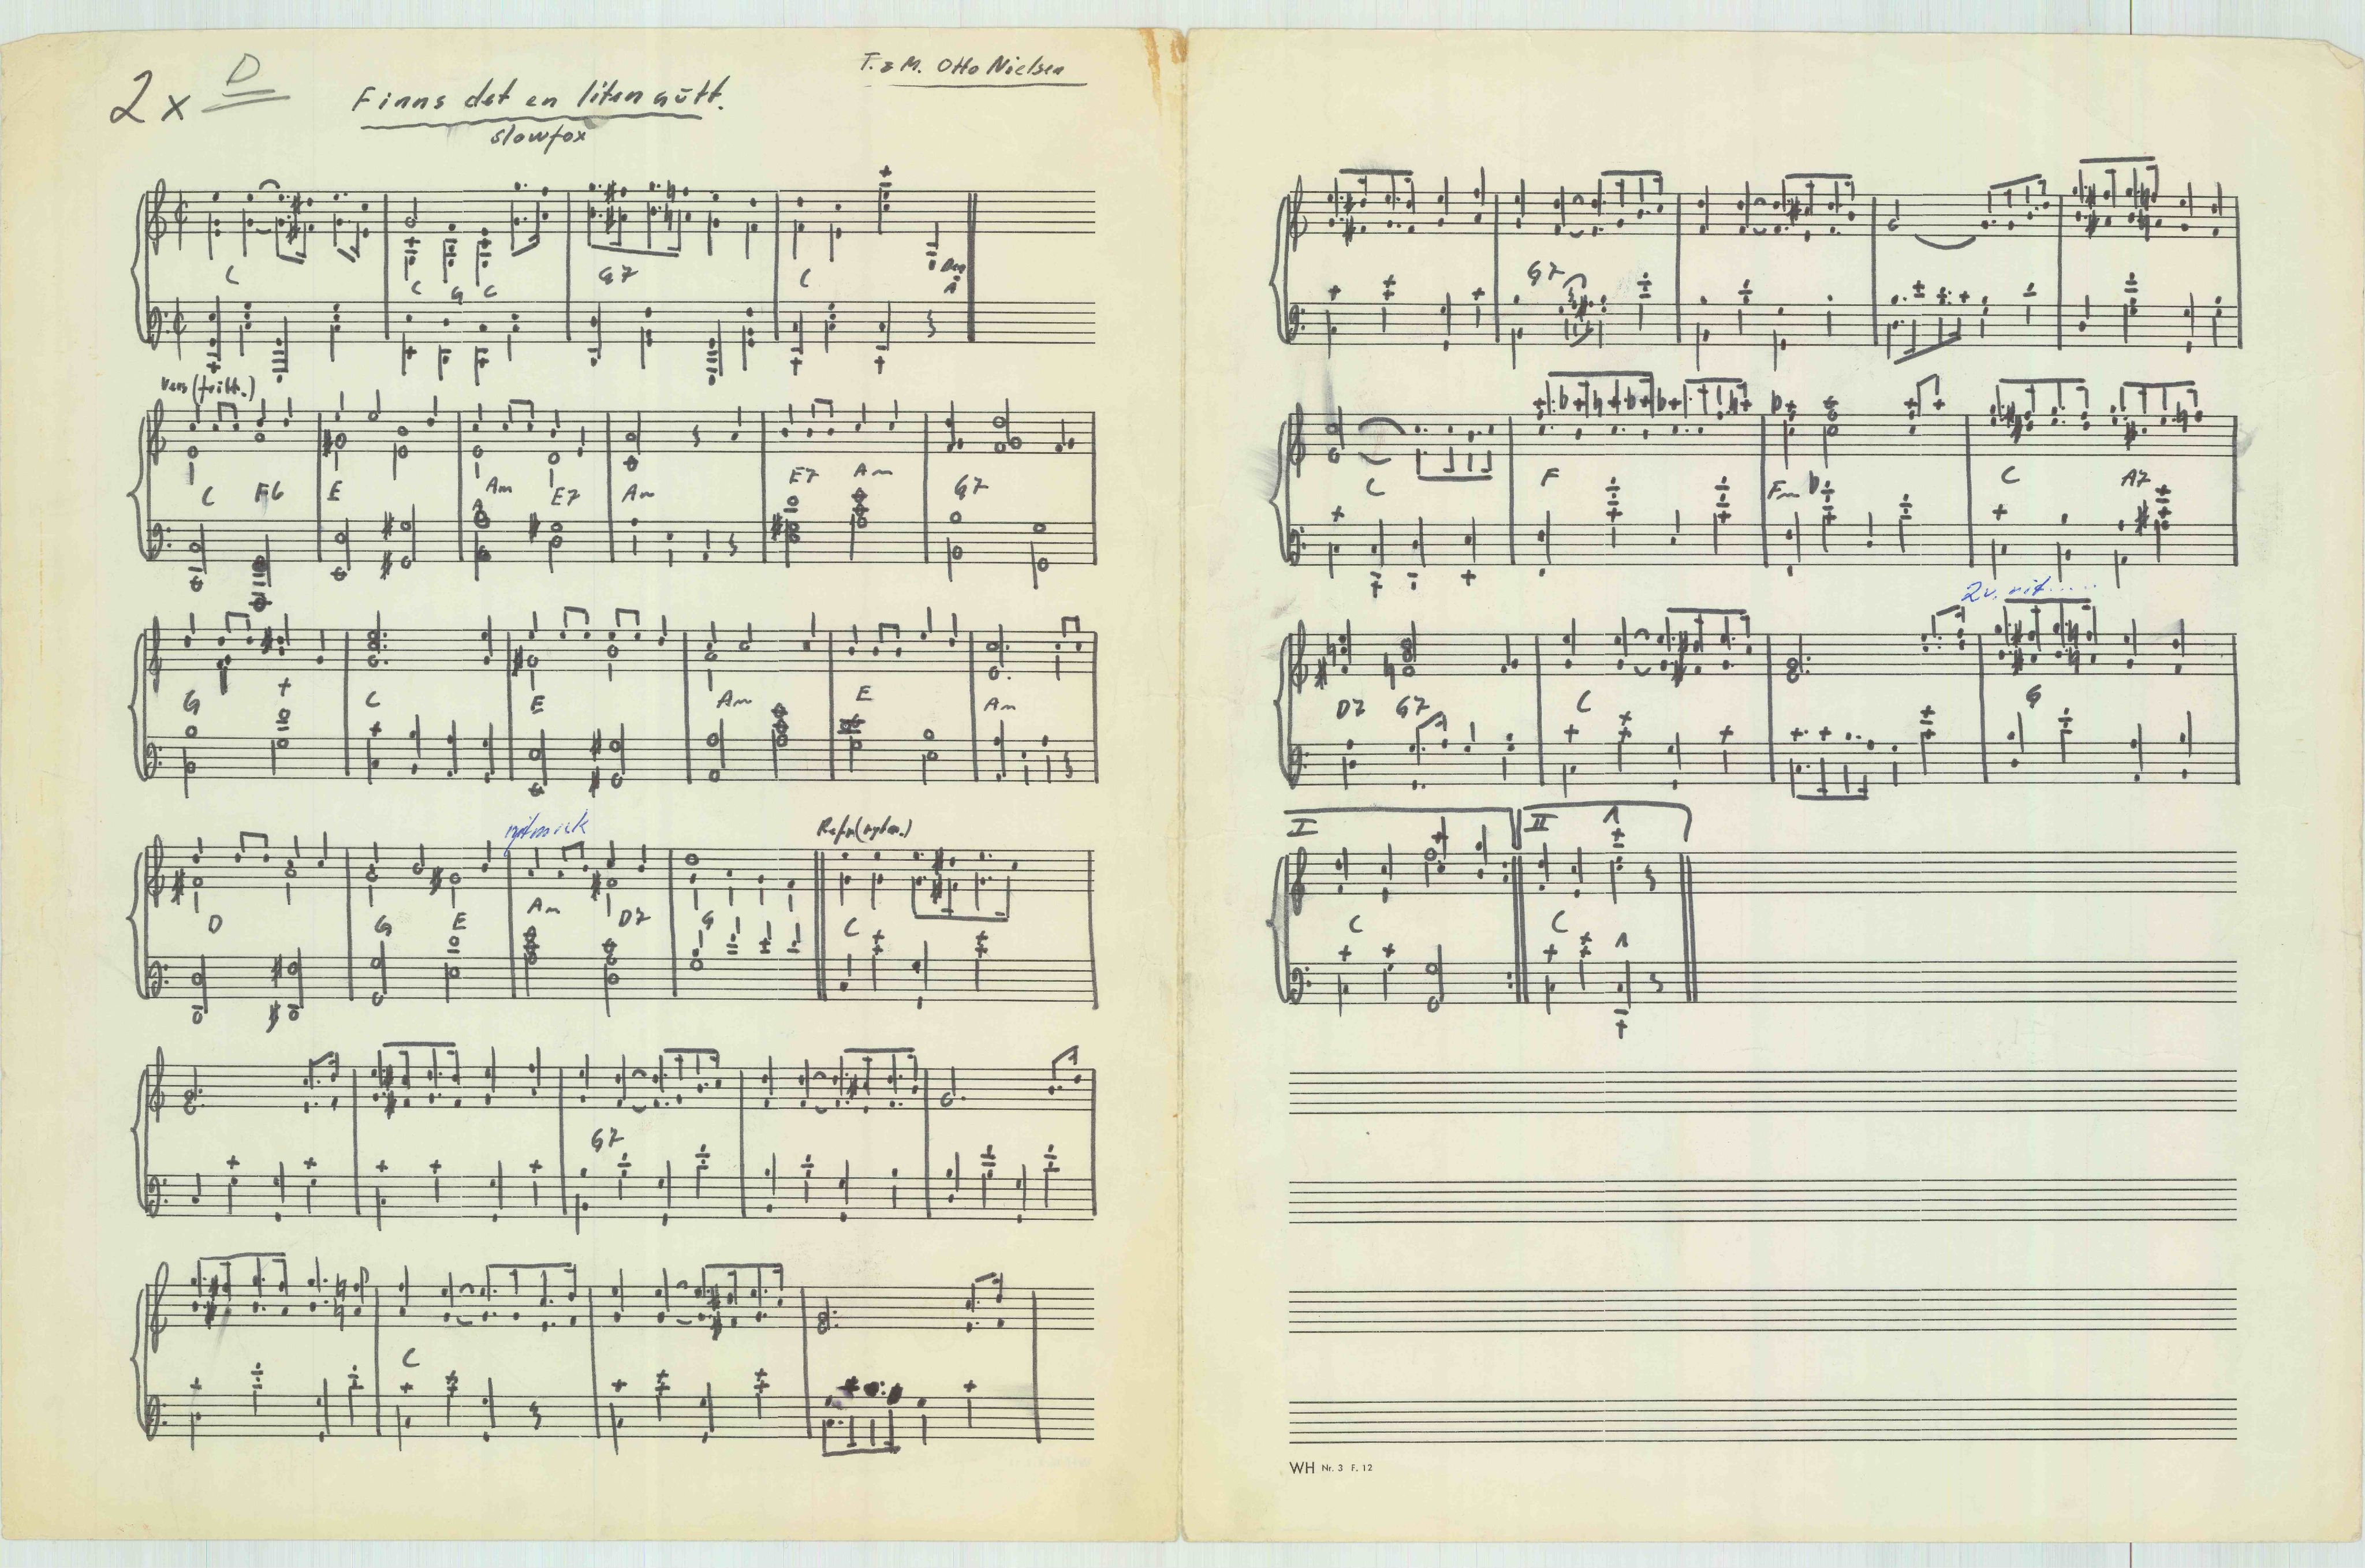 2x D
Finns det en liten gutt.
T. & M. Otto Nielsen
slowfox
C C G C G7 C
Vers (fritt.)
C F6 E Am E7 Am E7 Am G7
G C E Am E Am
ritmisk
Refr (rytm.)
D G E Am D7 G C
G7
C
G7
C F Fm C A7
2v. rit...
D7 G7 C G
I II
C C
WH Nr. 3 F. 12